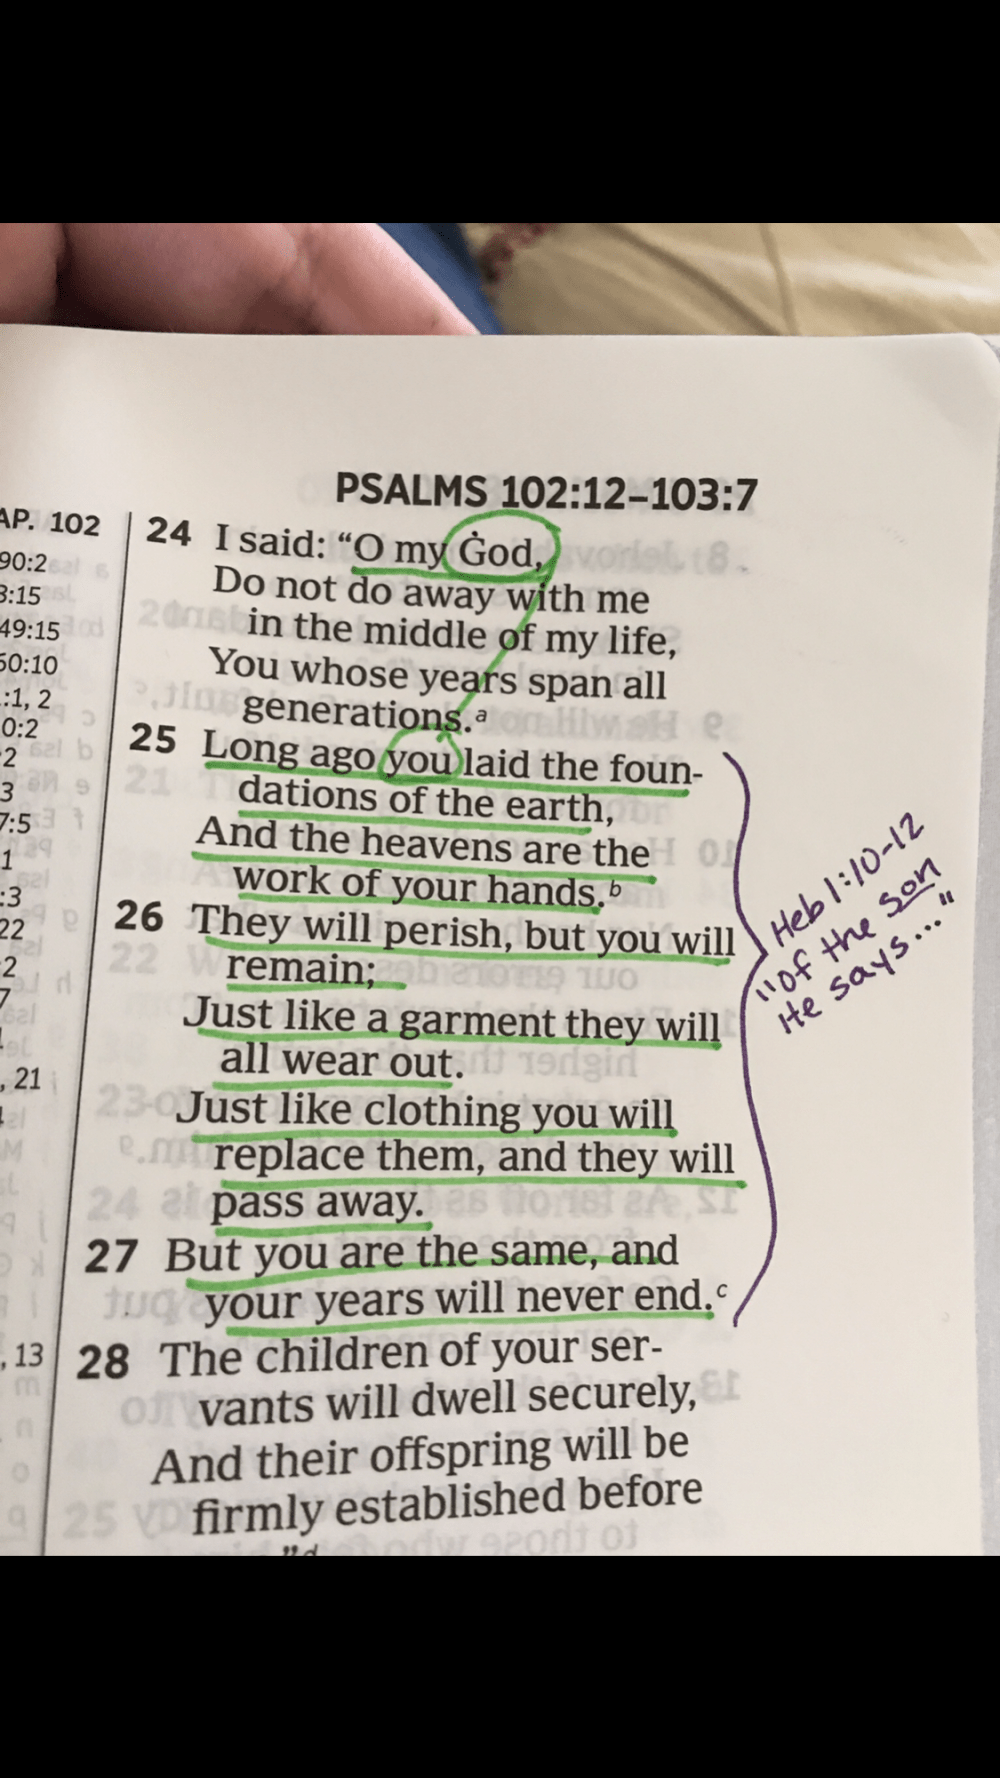 PSALMS 102:12–103:7
AP. 102
90:2
3:15
49:15
50:10
:1, 2
0:2
2
3
7:5
1
:3
22
2
7
, 21
, 13
24 I said: “O my God,
Do not do away with me
in the middle of my life,
You whose years span all
generations.a
25 Long ago you laid the foun-
dations of the earth,
And the heavens are the
work of your hands.b
26 They will perish, but you will
remain;
Just like a garment they will
all wear out.
Just like clothing you will
replace them, and they will
pass away.
27 But you are the same, and
your years will never end.c
28 The children of your ser-
vants will dwell securely,
And their offspring will be
firmly established before
”d
Heb 1:10-12
"of the son
He says..."